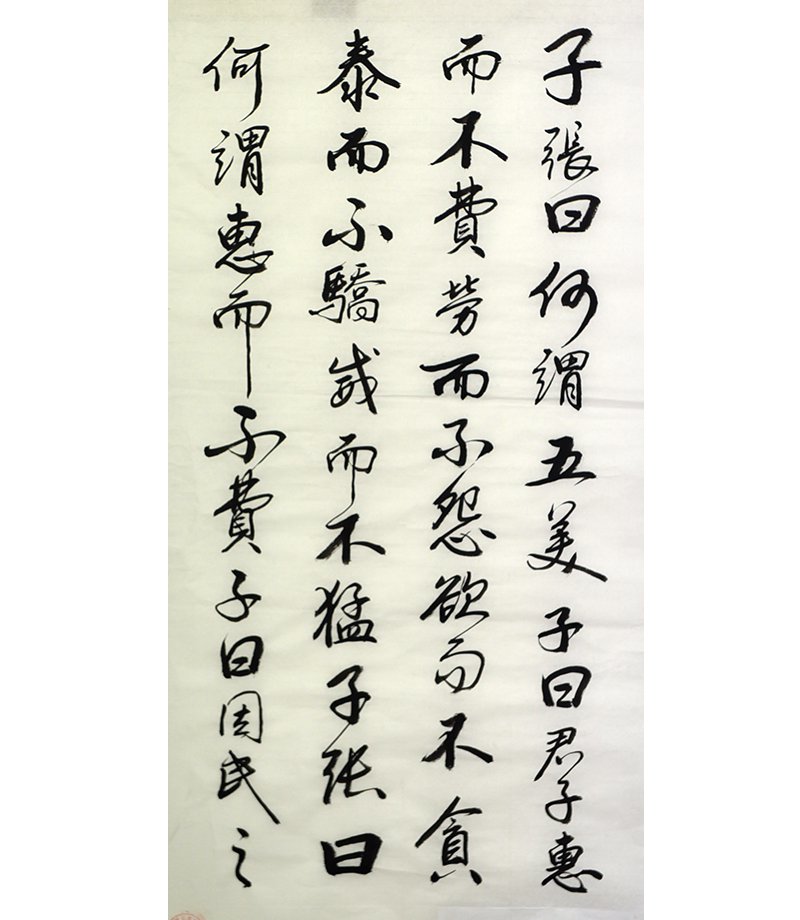 子張曰何謂五美子曰君子惠
而不費勞而不怨欲而不貪
泰而不驕威而不猛子张曰
何謂惠而不費子曰因民之